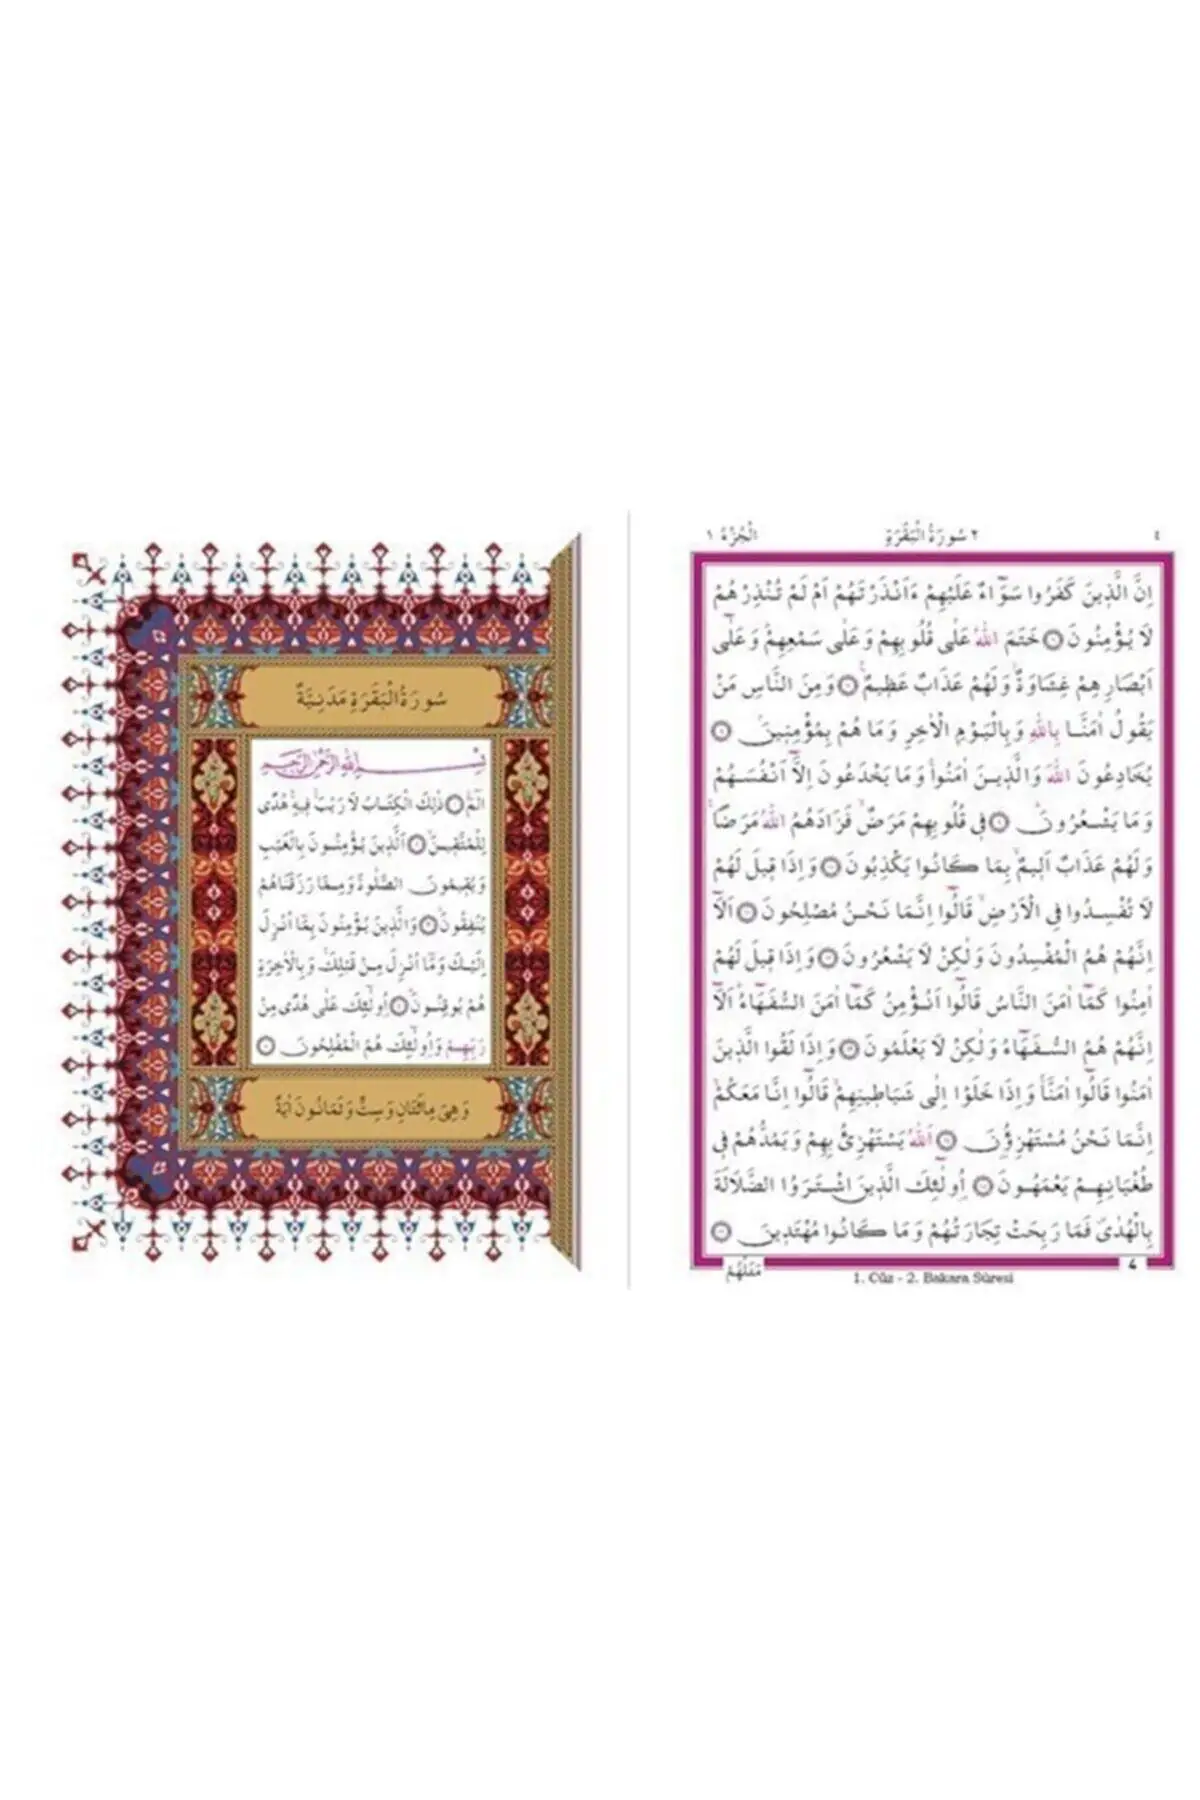 سُورَةُ الْبَقَرَةِ مَدَنِيَّةٌ
بِسْمِ اللّٰهِ الرَّحْمٰنِ الرَّحِيمِ
الٓمٓۚ ۝ ذٰلِكَ الْكِتَابُ لَا رَيْبَۚ فِيهِۚ هُدًى
لِلْمُتَّقِينَۙ ۝ اَلَّذِينَ يُؤْمِنُونَ بِالْغَيْبِ
وَيُقِيمُونَ الصَّلٰوةَ وَمِمَّا رَزَقْنَاهُمْ
يُنْفِقُونَۙ ۝ وَالَّذِينَ يُؤْمِنُونَ بِمَٓا اُنْزِلَ
اِلَيْكَ وَمَٓا اُنْزِلَ مِنْ قَبْلِكَۚ وَبِالْاٰخِرَةِ
هُمْ يُوقِنُونَۜ ۝ اُو۬لٰٓئِكَ عَلٰى هُدًى مِنْ
رَبِّهِمْ وَاُو۬لٰٓئِكَ هُمُ الْمُفْلِحُونَ ۝
وَهِيَ مِائَتَانِ وَسِتٌّ وَثَمَانُونَ اٰيَةً
اَلْجُزْءُ ١
٢ سُورَةُ الْبَقَرَةِ
٤
اِنَّ الَّذِينَ كَفَرُوا سَوَٓاءٌ عَلَيْهِمْ ءَاَنْذَرْتَهُمْ اَمْ لَمْ تُنْذِرْهُمْ
لَا يُؤْمِنُونَ ۝ خَتَمَ اللّٰهُ عَلٰى قُلُوبِهِمْ وَعَلٰى سَمْعِهِمْۜ وَعَلٰٓى
اَبْصَارِهِمْ غِشَاوَةٌۘ وَلَهُمْ عَذَابٌ عَظِيمٌ۟ ۝ وَمِنَ النَّاسِ مَنْ
يَقُولُ اٰمَنَّا بِاللّٰهِ وَبِالْيَوْمِ الْاٰخِرِ وَمَا هُمْ بِمُؤْمِنِينَۢ ۝
يُخَادِعُونَ اللّٰهَ وَالَّذِينَ اٰمَنُواۚ وَمَا يَخْدَعُونَ اِلَّٓا اَنْفُسَهُمْ
وَمَا يَشْعُرُونَۜ ۝ فِي قُلُوبِهِمْ مَرَضٌۙ فَزَادَهُمُ اللّٰهُ مَرَضًاۚ
وَلَهُمْ عَذَابٌ اَلِيمٌۙ بِمَا كَانُوا يَكْذِبُونَ ۝ وَاِذَا قِيلَ لَهُمْ
لَا تُفْسِدُوا فِي الْاَرْضِۙ قَالُٓوا اِنَّمَا نَحْنُ مُصْلِحُونَ ۝ اَلَٓا
اِنَّهُمْ هُمُ الْمُفْسِدُونَ وَلٰكِنْ لَا يَشْعُرُونَ ۝ وَاِذَا قِيلَ لَهُمْ
اٰمِنُوا كَمَٓا اٰمَنَ النَّاسُ قَالُٓوا اَنُؤْمِنُ كَمَٓا اٰمَنَ السُّفَهَٓاءُۜ اَلَٓا
اِنَّهُمْ هُمُ السُّفَهَٓاءُ وَلٰكِنْ لَا يَعْلَمُونَ ۝ وَاِذَا لَقُوا الَّذِينَ
اٰمَنُوا قَالُٓوا اٰمَنَّاۚ وَاِذَا خَلَوْا اِلٰى شَيَاطِينِهِمْۙ قَالُٓوا اِنَّا مَعَكُمْۙ
اِنَّمَا نَحْنُ مُسْتَهْزِؤُ۫نَ ۝ اَللّٰهُ يَسْتَهْزِئُ بِهِمْ وَيَمُدُّهُمْ فِي
طُغْيَانِهِمْ يَعْمَهُونَ ۝ اُو۬لٰٓئِكَ الَّذِينَ اشْتَرَوُا الضَّلَالَةَ
بِالْهُدٰىۖ فَمَا رَبِحَتْ تِجَارَتُهُمْ وَمَا كَانُوا مُهْتَدِينَ ۝
مَثَلُهُمْ
4
1. Cüz - 2. Bakara Sûresi